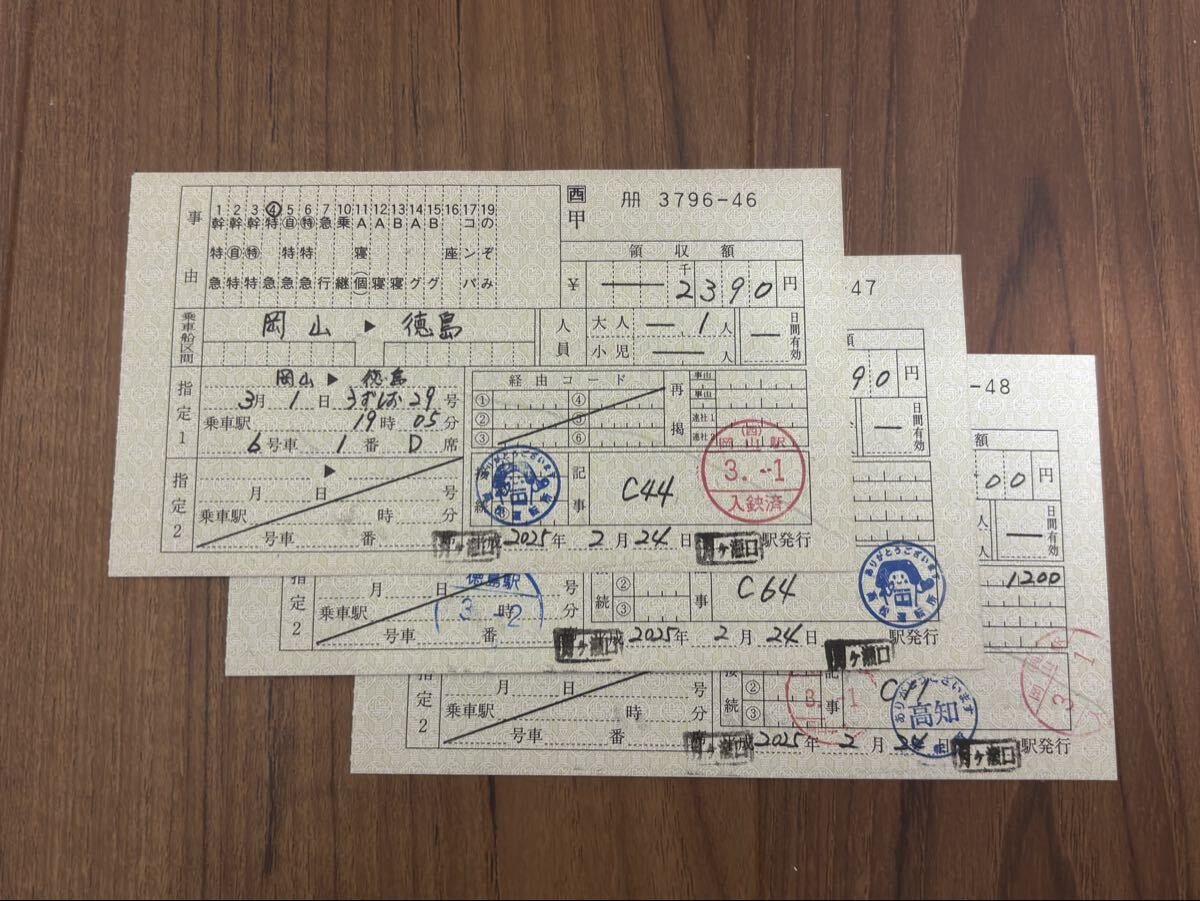 西
甲
冊 3796-46
事由
1 2 3 4 5 6 7 10 11 12 13 14 15 16 17 19
幹特急
幹自特
幹特特
特急
自特急
特特急
急行
乗継
A寝(個)
A寝
B寝
Aグ
Bグ
座
コンパ
のぞみ
領収額
¥ 千 2390 円
乗車船区間
岡山 ▶ 徳島
人員
大人 1人
小児 人
日間有効
指定1
岡山 ▶ 徳島
3月 1日 うずしお 29号
乗車駅 19時 05分
6号車 1番 D席
経由コード
① ④
② ⑤
③ ⑥
再掲
事由
事由
連社1
連社2
指定2
▶
月 日 号
乗車駅 時 分
号車 番
続
ありがとうございます
記事
C44
(西)
岡山駅
3.-1
入鋏済
平成 2025年 2月 24日 月ヶ瀬口 駅発行
47
額
90円
日間有効
指定2
月 日 号
乗車駅 時 分
号車 番
徳島駅
3.-2
続
②
③
事
C64
ありがとうございます
平成 2025年 2月 24日 月ヶ瀬口 駅発行
-48
額
00円
人
人
日間有効
1200
指定2
月 日 号
乗車駅 時 分
号車 番 席
接続
②
③
記事
3.-1
ありがとうございます
高知
平成 2025年 2月 24日 月ヶ瀬口 駅発行